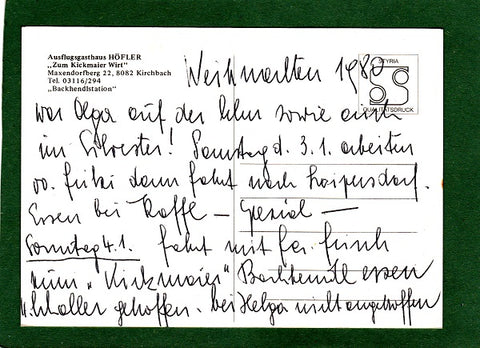 Ausflugsgasthaus HÖFLER
„Zum Kickmaier Wirt"
Maxendorfberg 22, 8082 Kirchbach
Tel. 03116/294
„Backhendlstation"
STYRIA
QUALITÄTSDRUCK
Weihnachten 1980
war Olga auf der sowie auch
im Silvester! Samstag d. 3.1. arbeiten
dann fahrt nach Loipersdorf.
Essen bei Kaffe – Spezial –
Sonntag 4.1. fahrt mit
zum „Kickmaier" essen
getroffen. bei Helga nicht angetroffen